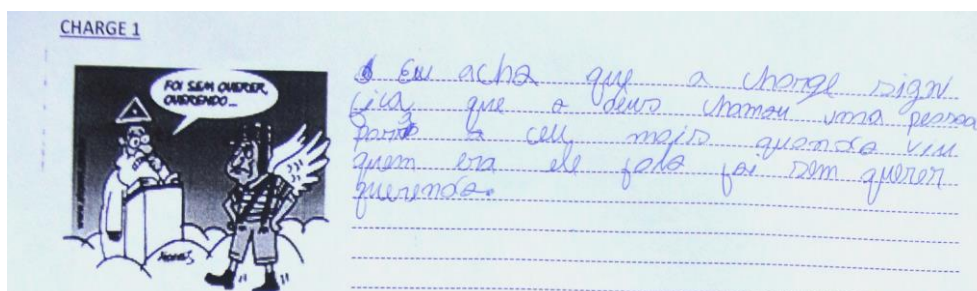 CHARGE 1
FOI SEM QUERER,
QUERENDO...
Eu acha que a charge signi
fica que o deus chamou uma pessoa
para o ceu mais quando viu
quem era ele fala foi sem querer
querendo.